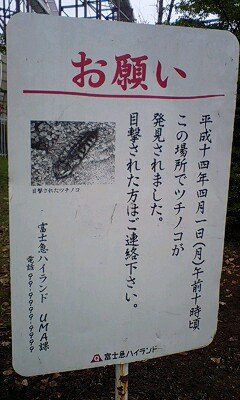 お願い
平成十四年四月一日(月)午前十時頃
この場所でツチノコが
発見されました。
目撃された方はご連絡下さい。
目撃されたツチノコ
富士急ハイランド UMA課
電話99-9999-9999
富士急ハイランド